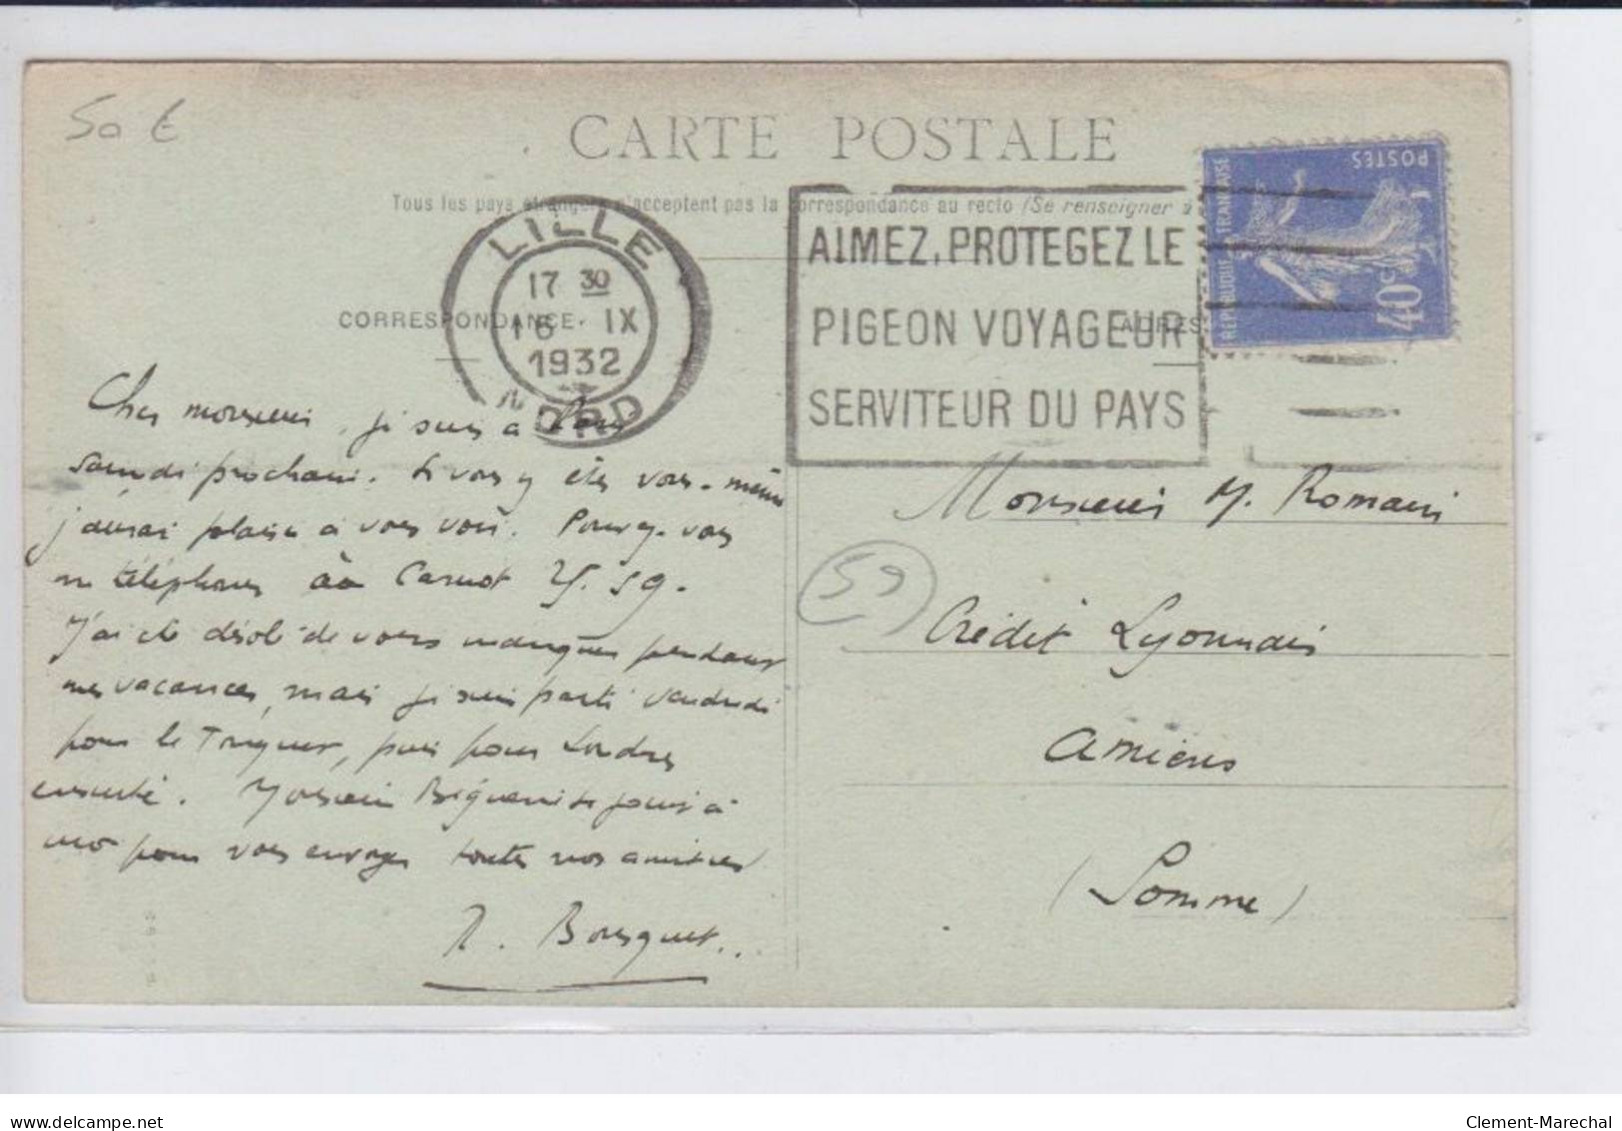 50 €
CARTE POSTALE
Tous les pays étrangers n'acceptent pas la correspondance au recto (Se renseigner à
LILLE
17 30
16 IX
1932
NORD
AIMEZ, PROTEGEZ LE
PIGEON VOYAGEUR
SERVITEUR DU PAYS
REPUBLIQUE FRANÇAISE
POSTES
40c
CORRESPONDANCE
ADRES
Cher monsieur, je suis à Paris
samedi prochain. Si vous y êtes vous-même
j'aurai plaisir à vous voir. Pouvez-vous
me téléphoner à Carnot 25.59.
J'ai été désolé de vous manquer pendant
mes vacances, mais je suis parti vendredi
pour le Touquet, puis pour Londres
ensuite. Monsieur se joint à
moi pour vous envoyer toutes nos amitiés
R. Bousquet.
Monsieur M. Romain
59
Crédit Lyonnais
Amiens
(Somme)
Clement-Marechal